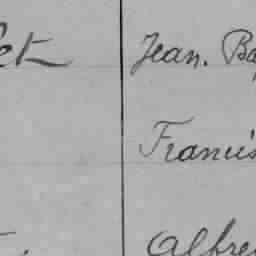 et Jean. Ba
Francis
Alfre